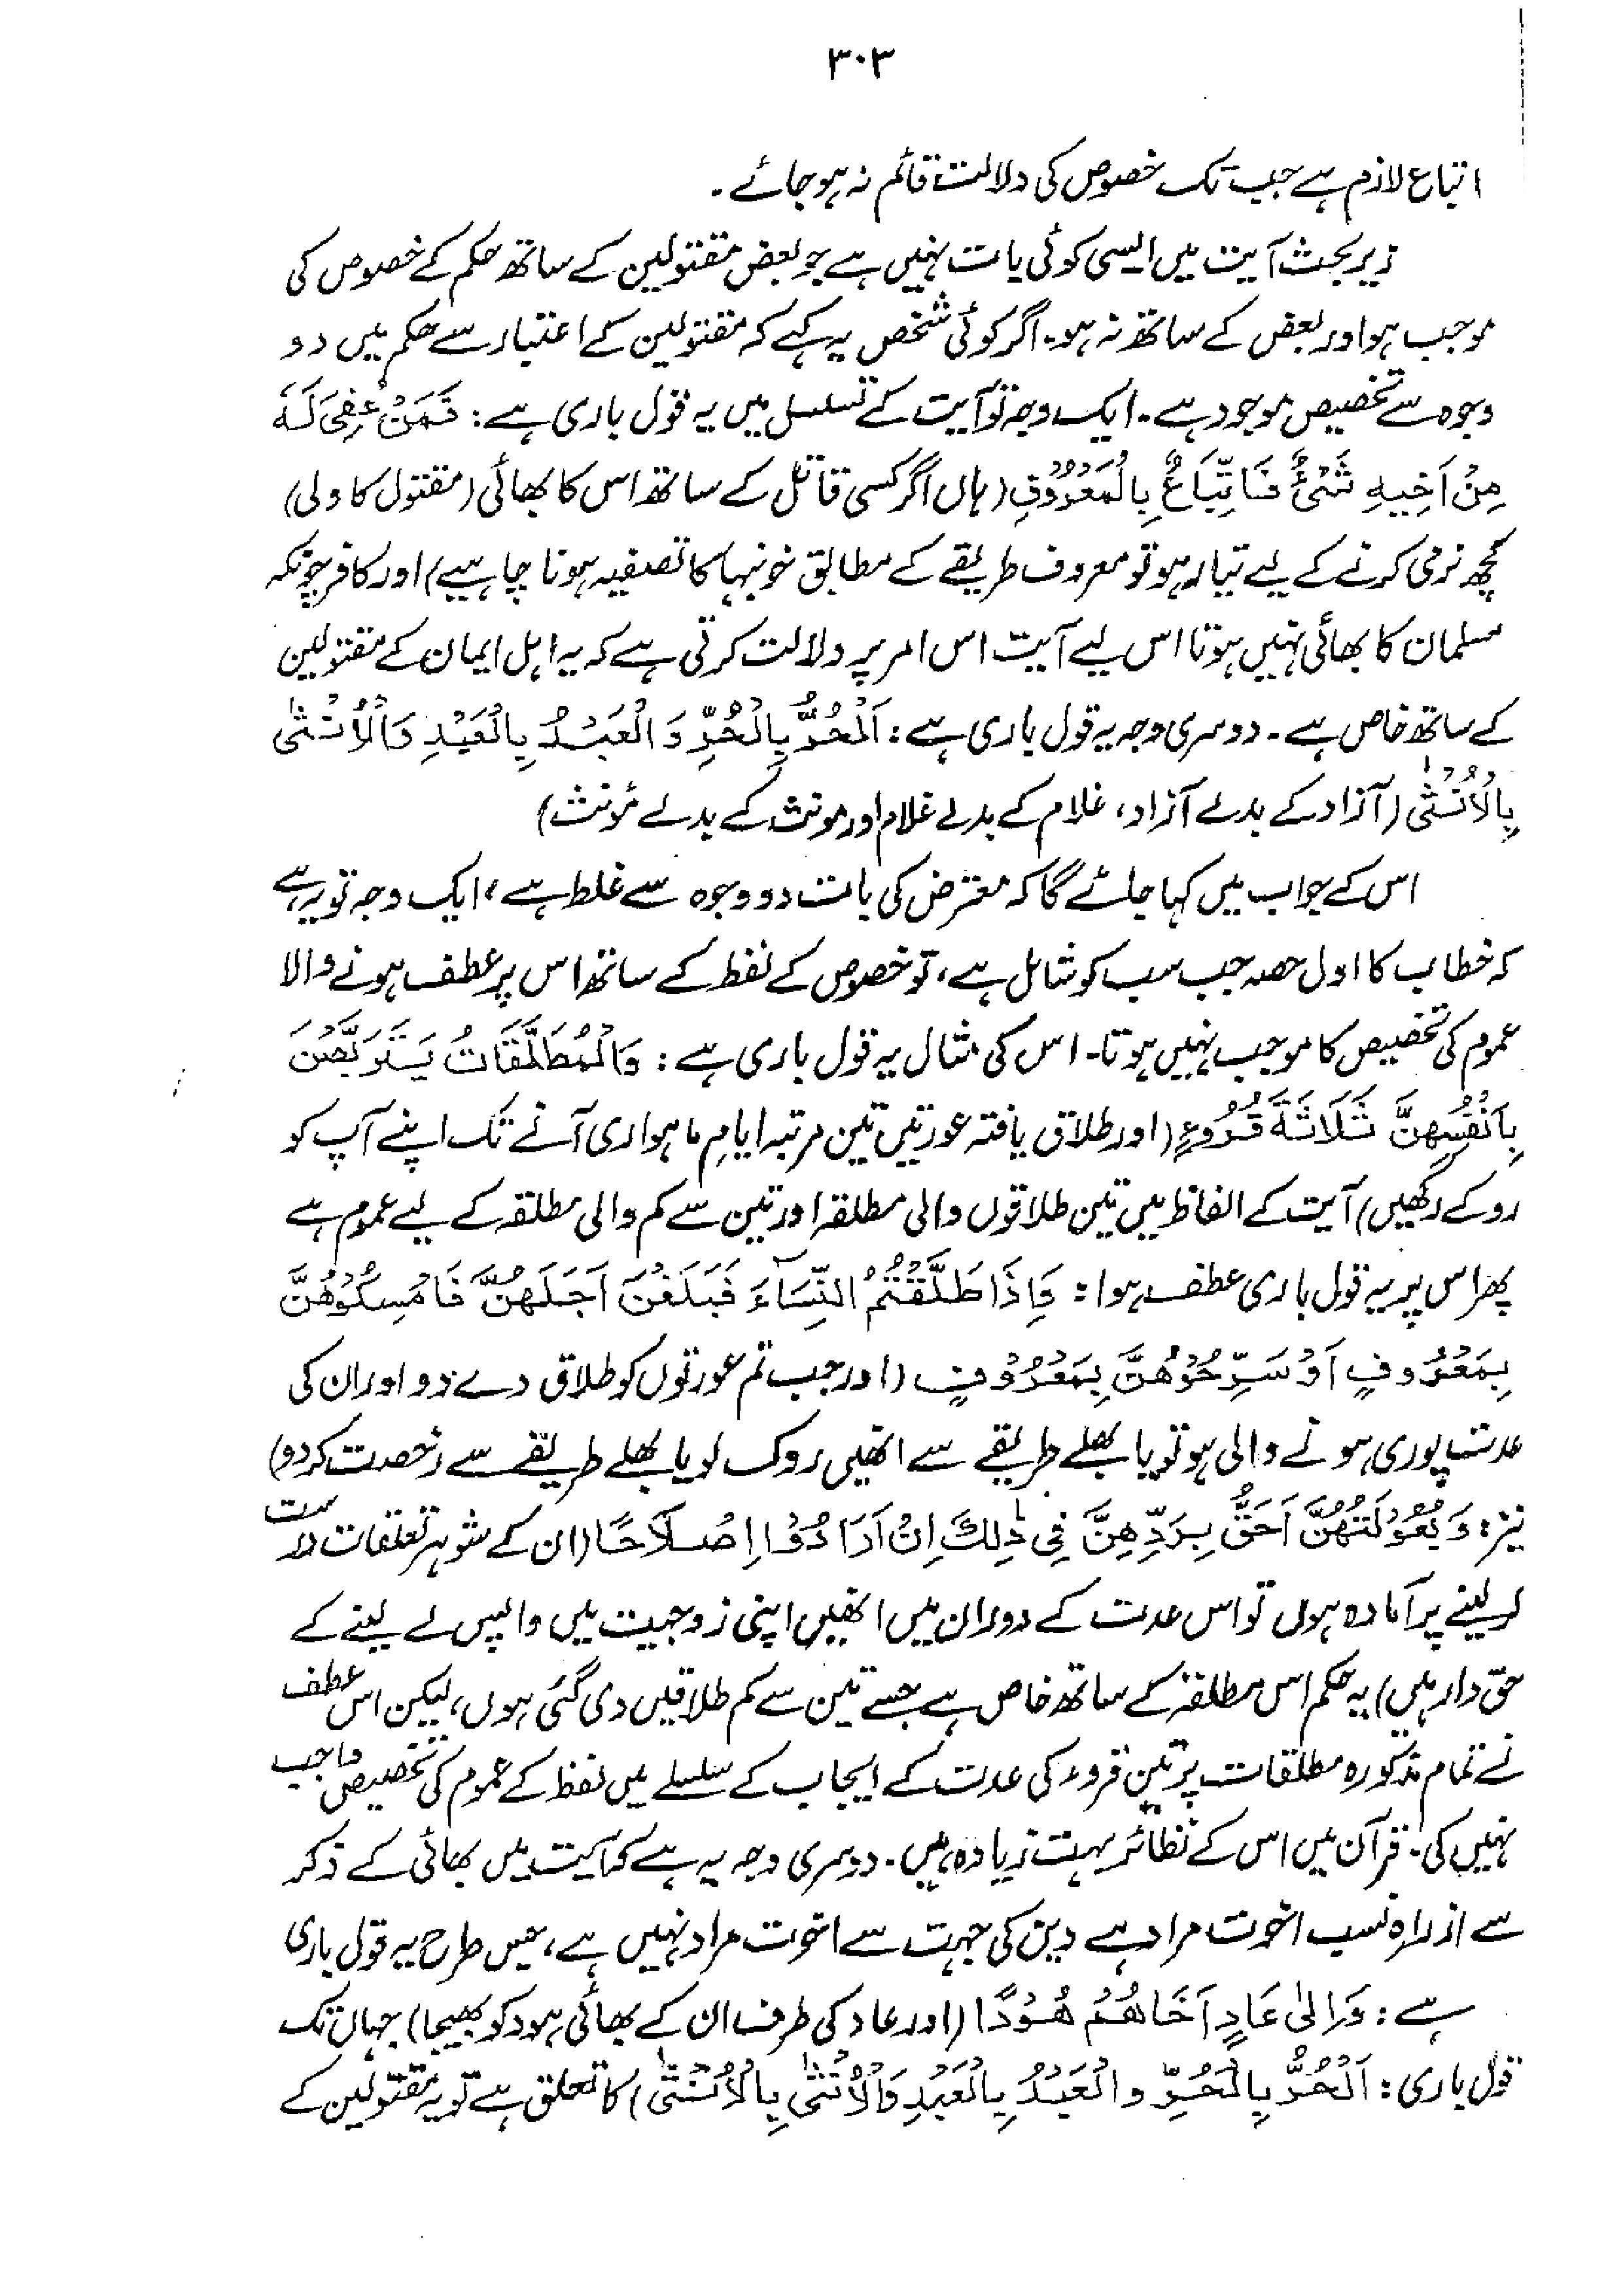 ۳۰۳
اتباع لازم ہے جب تک خصوص کی دلالت قائم نہ ہو جائے۔
زیر بحث آیت میں ایسی کوئی بات نہیں ہے جو بعض مقتولین کے ساتھ حکم کے خصوص کی
موجب ہو اور بعض کے ساتھ نہ ہو۔ اگر کوئی شخص یہ کہے کہ مقتولین کے اعتبار سے حکم میں دو
وجوہ سے تخصیص موجود ہے۔ ایک وجہ تو آیت کے تسلسل میں یہ قول باری ہے: فَمَنْ عُفِیَ لَہٗ
مِنْ اَخِیہِ شَیْئٌ فَاتِّبَاعٌ بِالْمَعْرُوْفِ (ہاں اگر کسی قاتل کے ساتھ اس کا بھائی (مقتول کا ولی)
کچھ نرمی کرنے کے لیے تیار ہو تو معروف طریقے کے مطابق خونبہا کا تصفیہ ہونا چاہیے) اور کافر چونکہ
مسلمان کا بھائی نہیں ہوتا اس لیے آیت اس امر پر دلالت کرتی ہے کہ یہ اہل ایمان کے مقتولین
کے ساتھ خاص ہے۔ دوسری وجہ یہ قول باری ہے: اَلْحُرُّ بِالْحُرِّ وَالْعَبْدُ بِالْعَبْدِ وَالْاُنْثٰی
بِالْاُنْثٰی (آزاد کے بدلے آزاد، غلام کے بدلے غلام اور مونث کے بدلے مؤنث)
اس کے جواب میں کہا جائے گا کہ معترض کی بات دو وجوہ سے غلط ہے، ایک وجہ تو یہ ہے
کہ خطاب کا اول حصہ جب سب کو شامل ہے، تو خصوص کے لفظ کے ساتھ اس پر عطف ہونے والا
عموم کی تخصیص کا موجب نہیں ہوتا۔ اس کی مثال یہ قول باری ہے: وَالْمُطَلَّقَاتُ یَتَرَبَّصْنَ
بِاَنْفُسِھِنَّ ثَلَاثَۃَ قُرُوْءٍ (اور طلاق یافتہ عورتیں تین مرتبہ ایامِ ماہواری آنے تک اپنے آپ کو
روکے رکھیں) آیت کے الفاظ میں تین طلاقوں والی مطلقہ اور تین سے کم والی مطلقہ کے لیے عموم ہے
پھر اس پر یہ قول باری عطف ہوا: فَاِذَا طَلَّقْتُمُ النِّسَآءَ فَبَلَغْنَ اَجَلَھُنَّ فَامْسِکُوْھُنَّ
بِمَعْرُوفٍ اَوْ سَرِّحُوْھُنَّ بِمَعْرُوْفٍ (اور جب تم عورتوں کو طلاق دے دو اور ان کی
عدت پوری ہونے والی ہو تو یا بھلے طریقے سے انھیں روک لو یا بھلے طریقے سے رخصت کر دو)
نیز: وَ بُعُوْلَتُھُنَّ اَحَقُّ بِرَدِّھِنَّ فِی ذٰلِکَ اِنْ اَرَادُوْا اِصْلَاحًا (ان کے شوہر تعلقات درست
کر لینے پر آمادہ ہوں تو اس عدت کے دوران میں انھیں اپنی زوجیت میں واپس لے لینے کے
حق دار ہیں) یہ حکم اس مطلقہ کے ساتھ خاص ہے جسے تین سے کم طلاقیں دی گئی ہوں، لیکن اس عطف
نے تمام مذکورہ مطلقات پر تین قروء کی عدت کے ایجاب کے سلسلے میں لفظ کے عموم کی تخصیص واجب
نہیں کی۔ قرآن میں اس کے نظائر بہت زیادہ ہیں۔ دوسری وجہ یہ ہے کہ آیت میں بھائی کے ذکر
سے از راہ نسب اخوت مراد ہے دین کی جہت سے اخوت مراد نہیں ہے، جس طرح یہ قول باری
ہے: وَاِلٰی عَادٍ اَخَاھُمْ ھُوْدًا (اور عاد کی طرف ان کے بھائی ہود کو بھیجا) جہاں تک
قول باری: اَلْحُرُّ بِالْحُرِّ وَالْعَبْدُ بِالْعَبْدِ وَالْاُنْثٰی بِالْاُنْثٰی) کا تعلق ہے تو یہ مقتولین کے